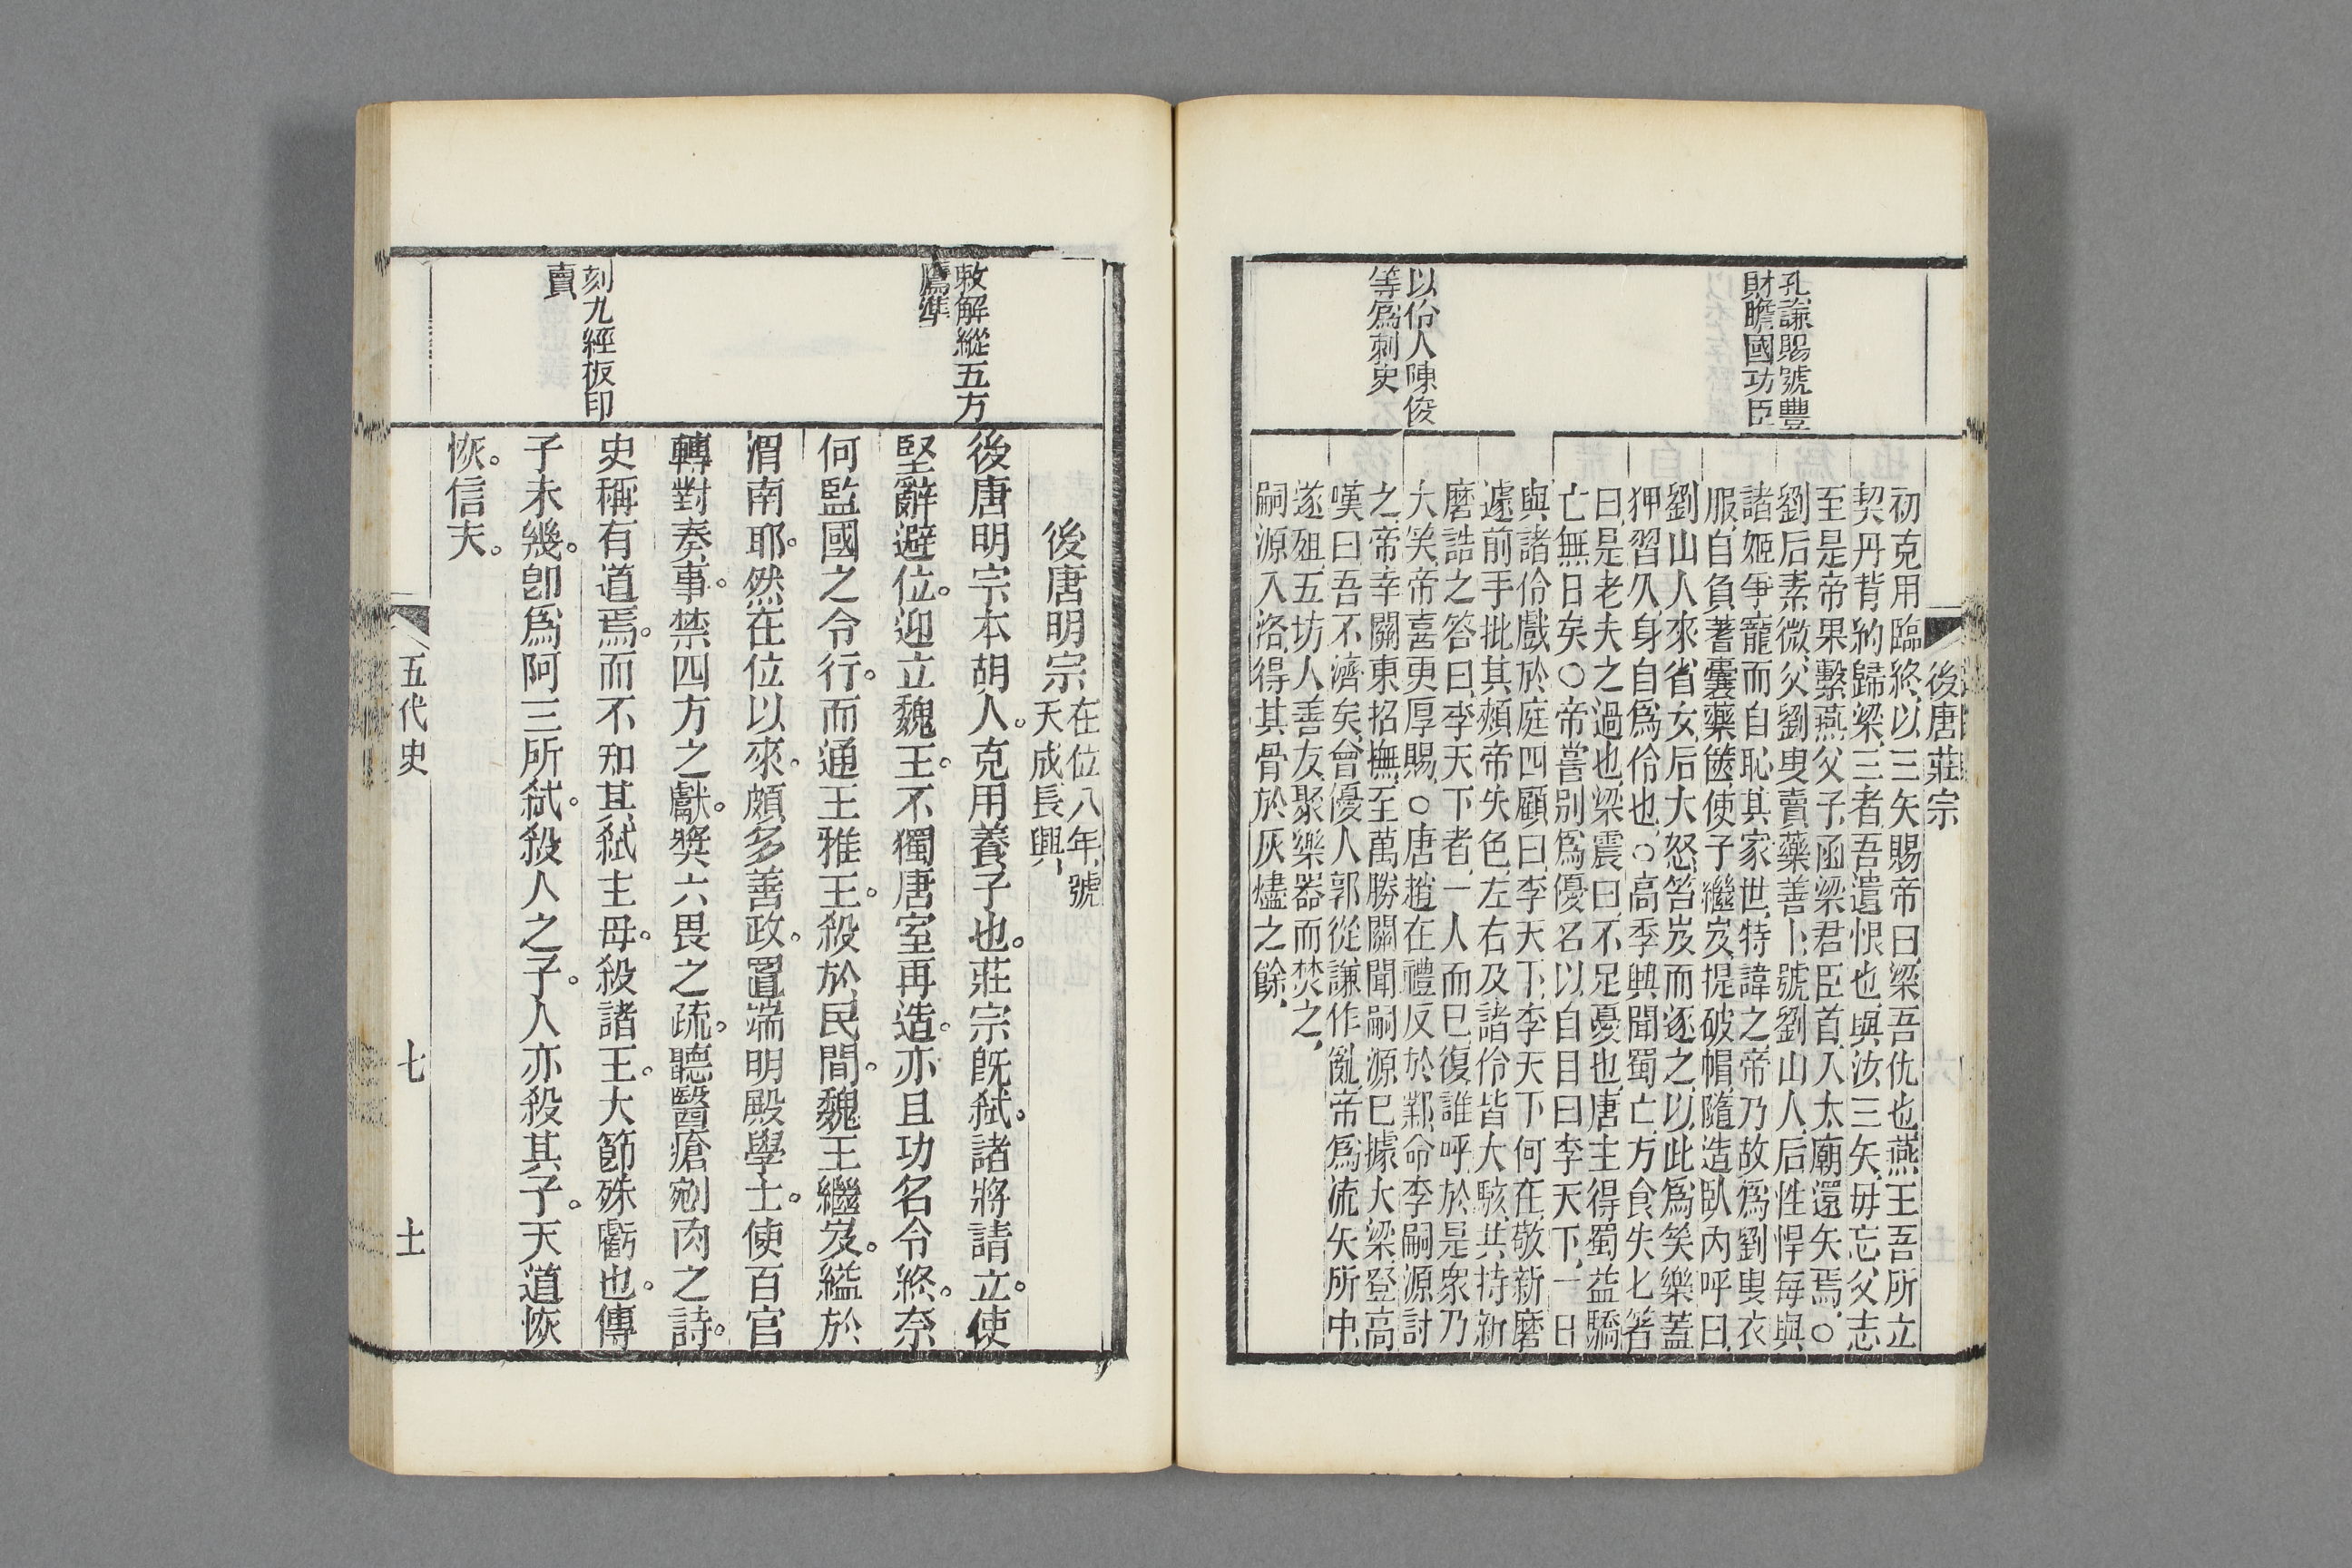 後唐莊宗
孔謙賜號豐
財贍國功臣
以伶人陳俊
等爲刺史
初克用臨終、以三矢賜帝曰、梁吾仇也、燕王吾所立
契丹背約歸梁、三者吾遺恨也、與汝三矢、毋忘父志
至是帝果繫燕父子、函梁君臣首、入太廟還矢焉、○
劉后素微、父劉叟賣藥善卜、號劉山人、后性悍、每與
諸姬爭寵而自恥其家世、特諱之、帝乃故爲劉叟衣
服、自負蓍囊藥篋、使子繼岌提破帽隨造臥內呼曰、
劉山人來省女、后大怒、笞岌而逐之、以此爲笑樂、蓋
狎習久、身自爲伶也、○高季興聞蜀亡、方食失匕箸
曰、是老夫之過也、梁震曰、不足憂也、唐主得蜀益驕
亡無日矣、○帝嘗別爲優名、以自目曰李天下、一日
與諸伶戲於庭、四顧曰、李天下、李天下何在、敬新磨
遽前手批其頰、帝失色、左右及諸伶皆大駭、共持新
磨詰之、答曰、李天下者、一人而已、復誰呼、於是眾乃
大笑、帝喜更厚賜、○唐趙在禮反於鄴、命李嗣源討
之、帝幸關東招撫、至萬勝關聞嗣源已據大梁、登高
嘆曰、吾不濟矣、會優人郭從謙作亂、帝爲流矢所中、
遂殂、五坊人善友聚樂器而焚之、
嗣源入洛、得其骨於灰燼之餘、
敕解縱五方
鷹隼
刻九經板印
賣
後唐明宗在位八年、號
天成長興、
後唐明宗本胡人。克用養子也。莊宗旣弑。諸將請立。使
堅辭避位。迎立魏王。不獨唐室再造。亦且功名令終。奈
何監國之令行。而通王雅王。殺於民間。魏王繼岌。縊於
渭南耶。然在位以來。頗多善政。置端明殿學士。使百官
轉對奏事。禁四方之獻。獎六畏之疏。聽醫瘡剜肉之詩。
史稱有道焉。而不知其弑主母。殺諸王。大節殊虧也。傳
子未幾。卽爲阿三所弑。殺人之子。人亦殺其子。天道恢
恢。信夫。
五代史
七
士